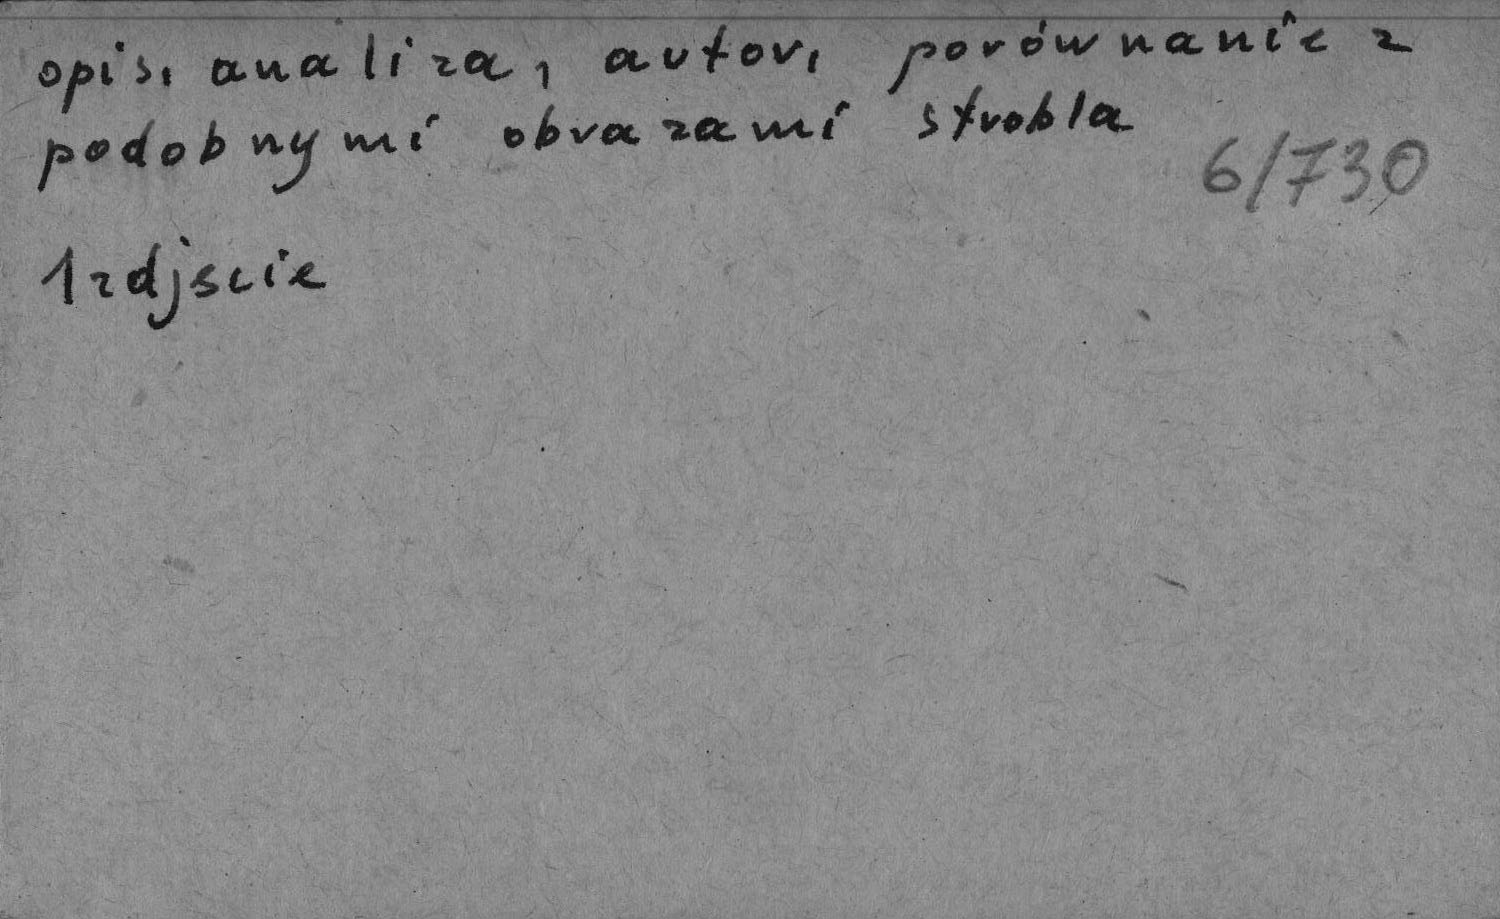 opis, analiza, autor, porównanie z
podobnymi obrazami strobla
6/730
1 zdjscie